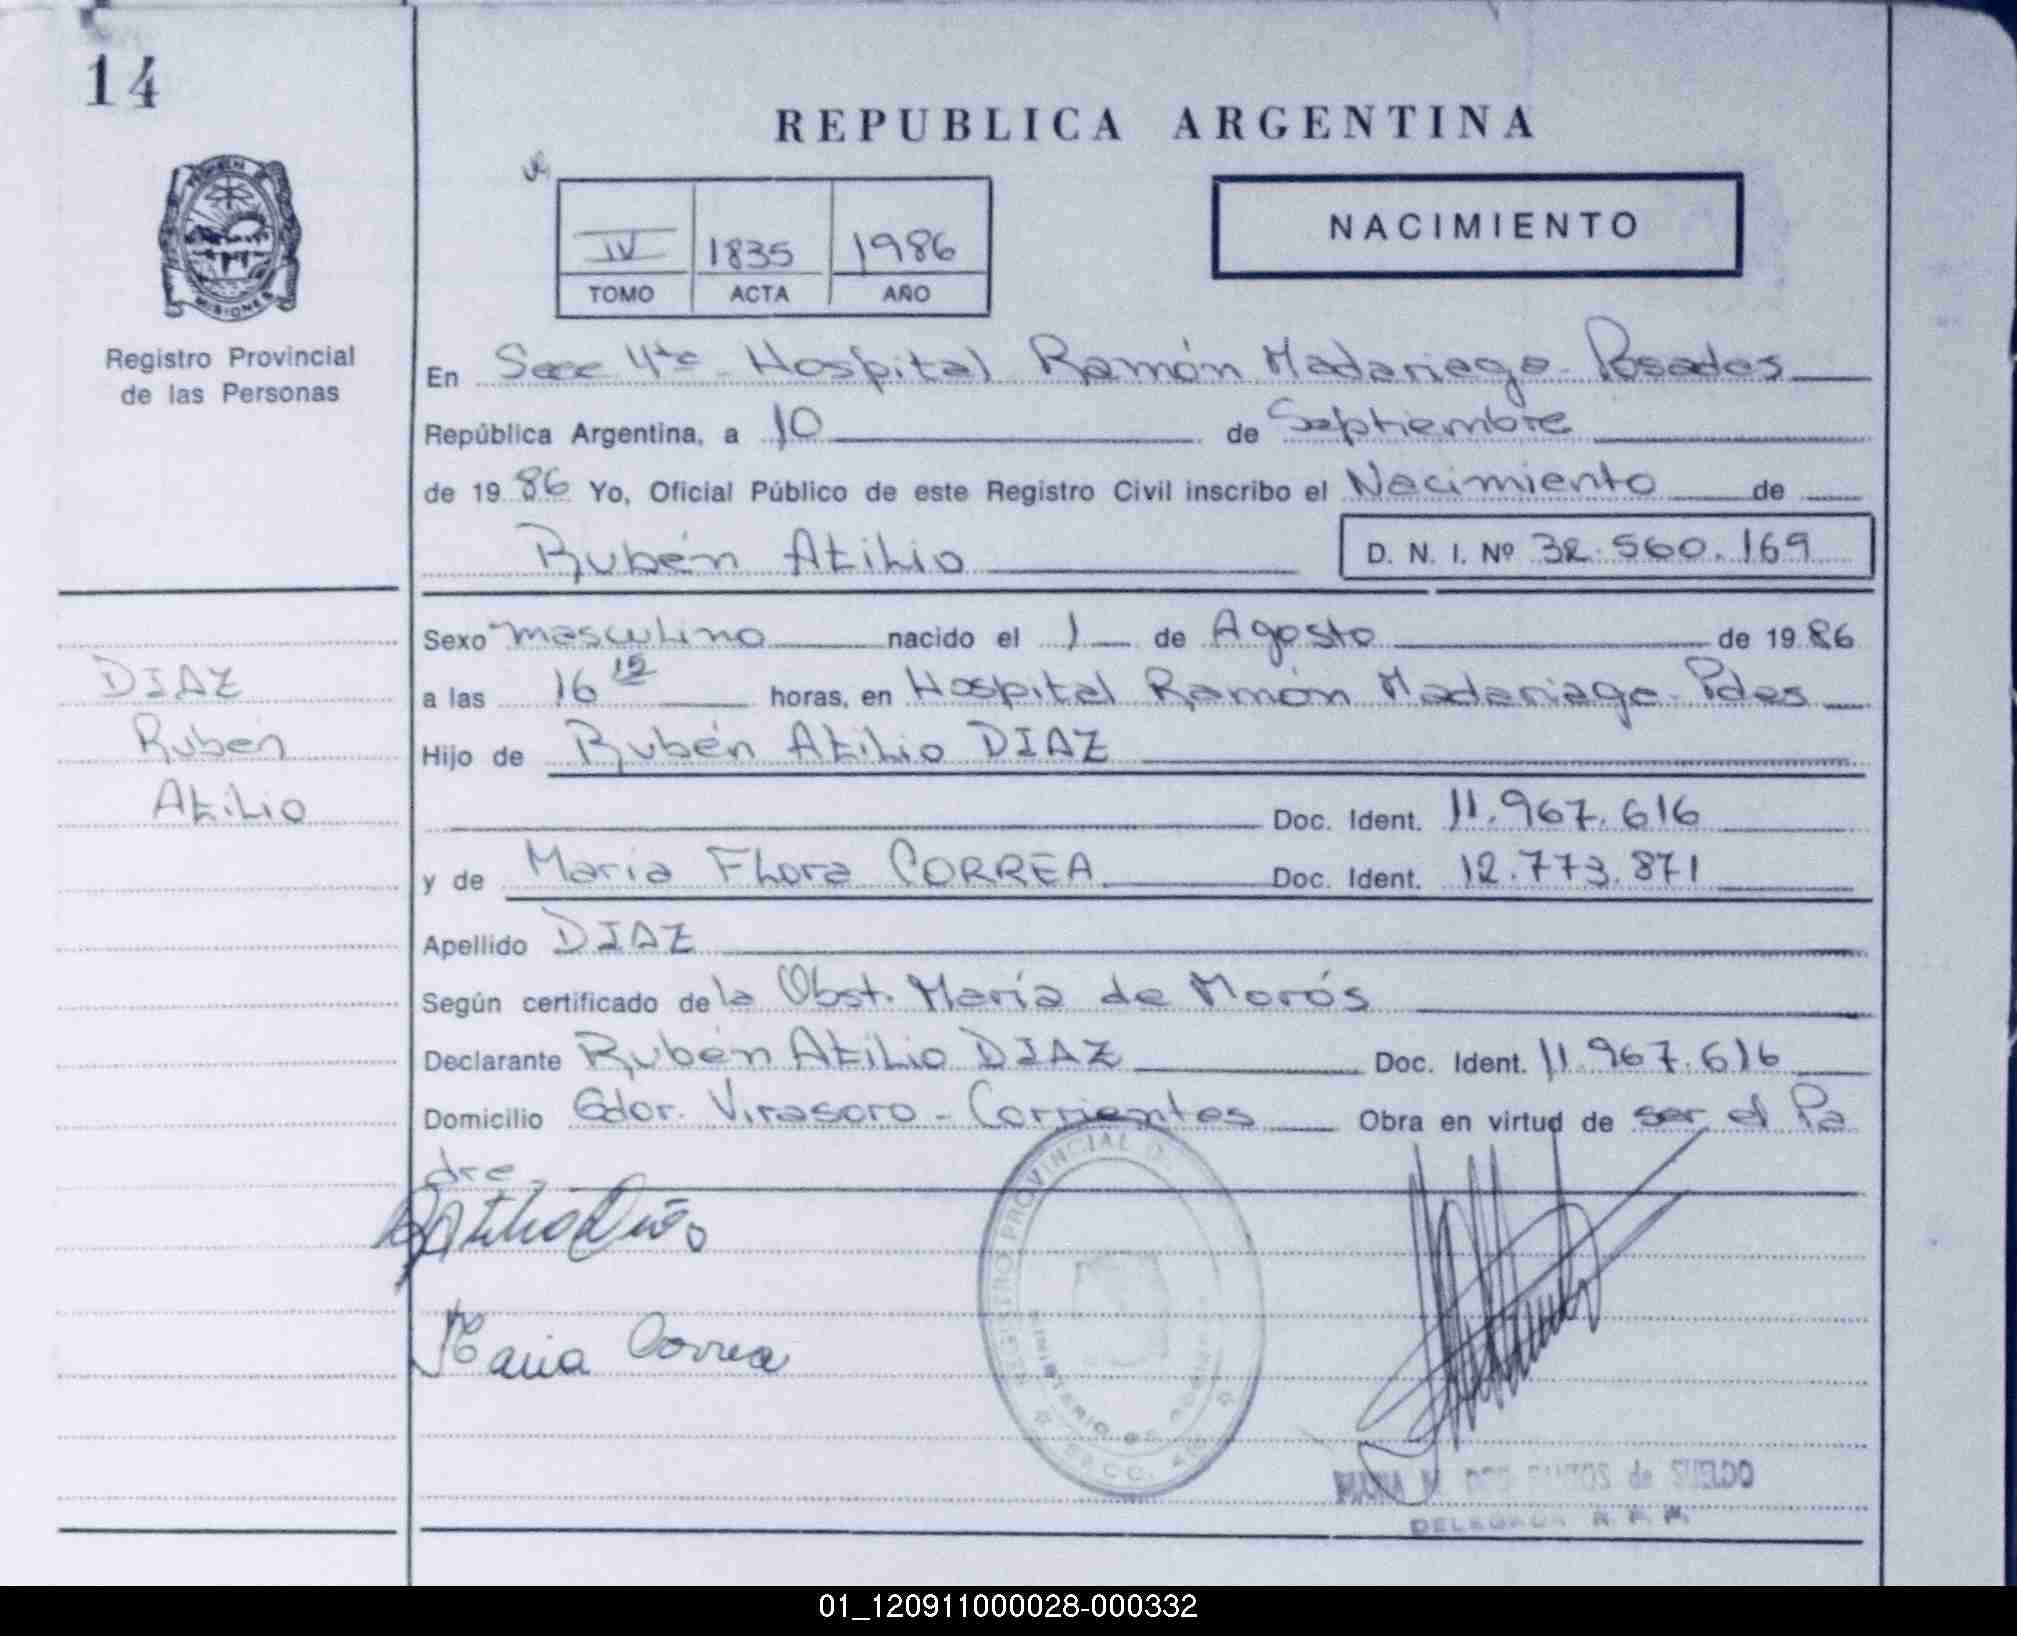 14
REPUBLICA ARGENTINA
IV 1835 1986
TOMO ACTA AÑO
NACIMIENTO
MISIONES
Registro Provincial
de las Personas
En Secc 4ta - Hospital Ramón Madariaga - Posadas
República Argentina, a 10 de Septiembre
de 19 86 Yo, Oficial Público de este Registro Civil inscribo el Nacimiento de
Rubén Atilio D. N. I. Nº 32.560.169
Sexo masculino nacido el 1 de Agosto de 19 86
a las 16 15 horas, en Hospital Ramón Madariaga - Pdas
Hijo de Rubén Atilio DIAZ
Doc. Ident. 11.967.616
y de María Flora CORREA Doc. Ident. 12.773.871
Apellido DIAZ
Según certificado de la Obst. María de Morós
Declarante Rubén Atilio DIAZ Doc. Ident. 11.967.616
Domicilio Gdor. Virasoro - Corrientes Obra en virtud de ser el Pa
dre.
DIAZ
Rubén
Atilio
R Atilio Diaz
Maria Correa
REGISTRO PROVINCIAL D
MINISTERIO DE
SECC. 4
DELEGADA R. P. P.
01_120911000028-000332